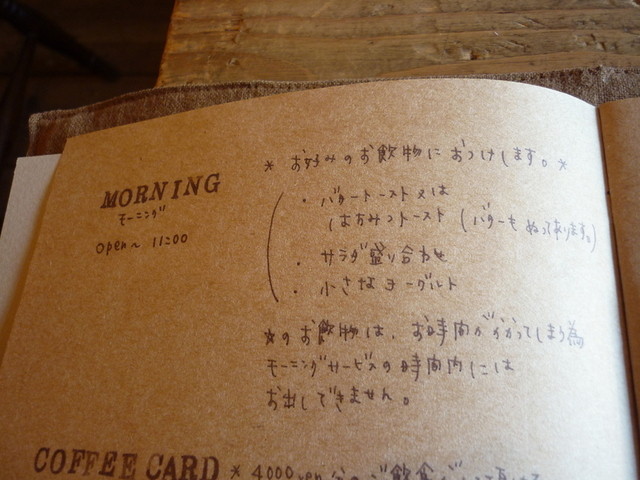 MORNING
モーニング
open~ 11:00
* お好みのお飲物におつけします。*
・バタートースト又は
はちみつトースト (バターもぬってあります。)
・サラダ盛り合わせ
・小さなヨーグルト
☆のお飲物は、お時間がかかってしまう為
モーニングサービスの時間内には
お出しできません。
COFFEE CARD * 4000yen 分のご飲食